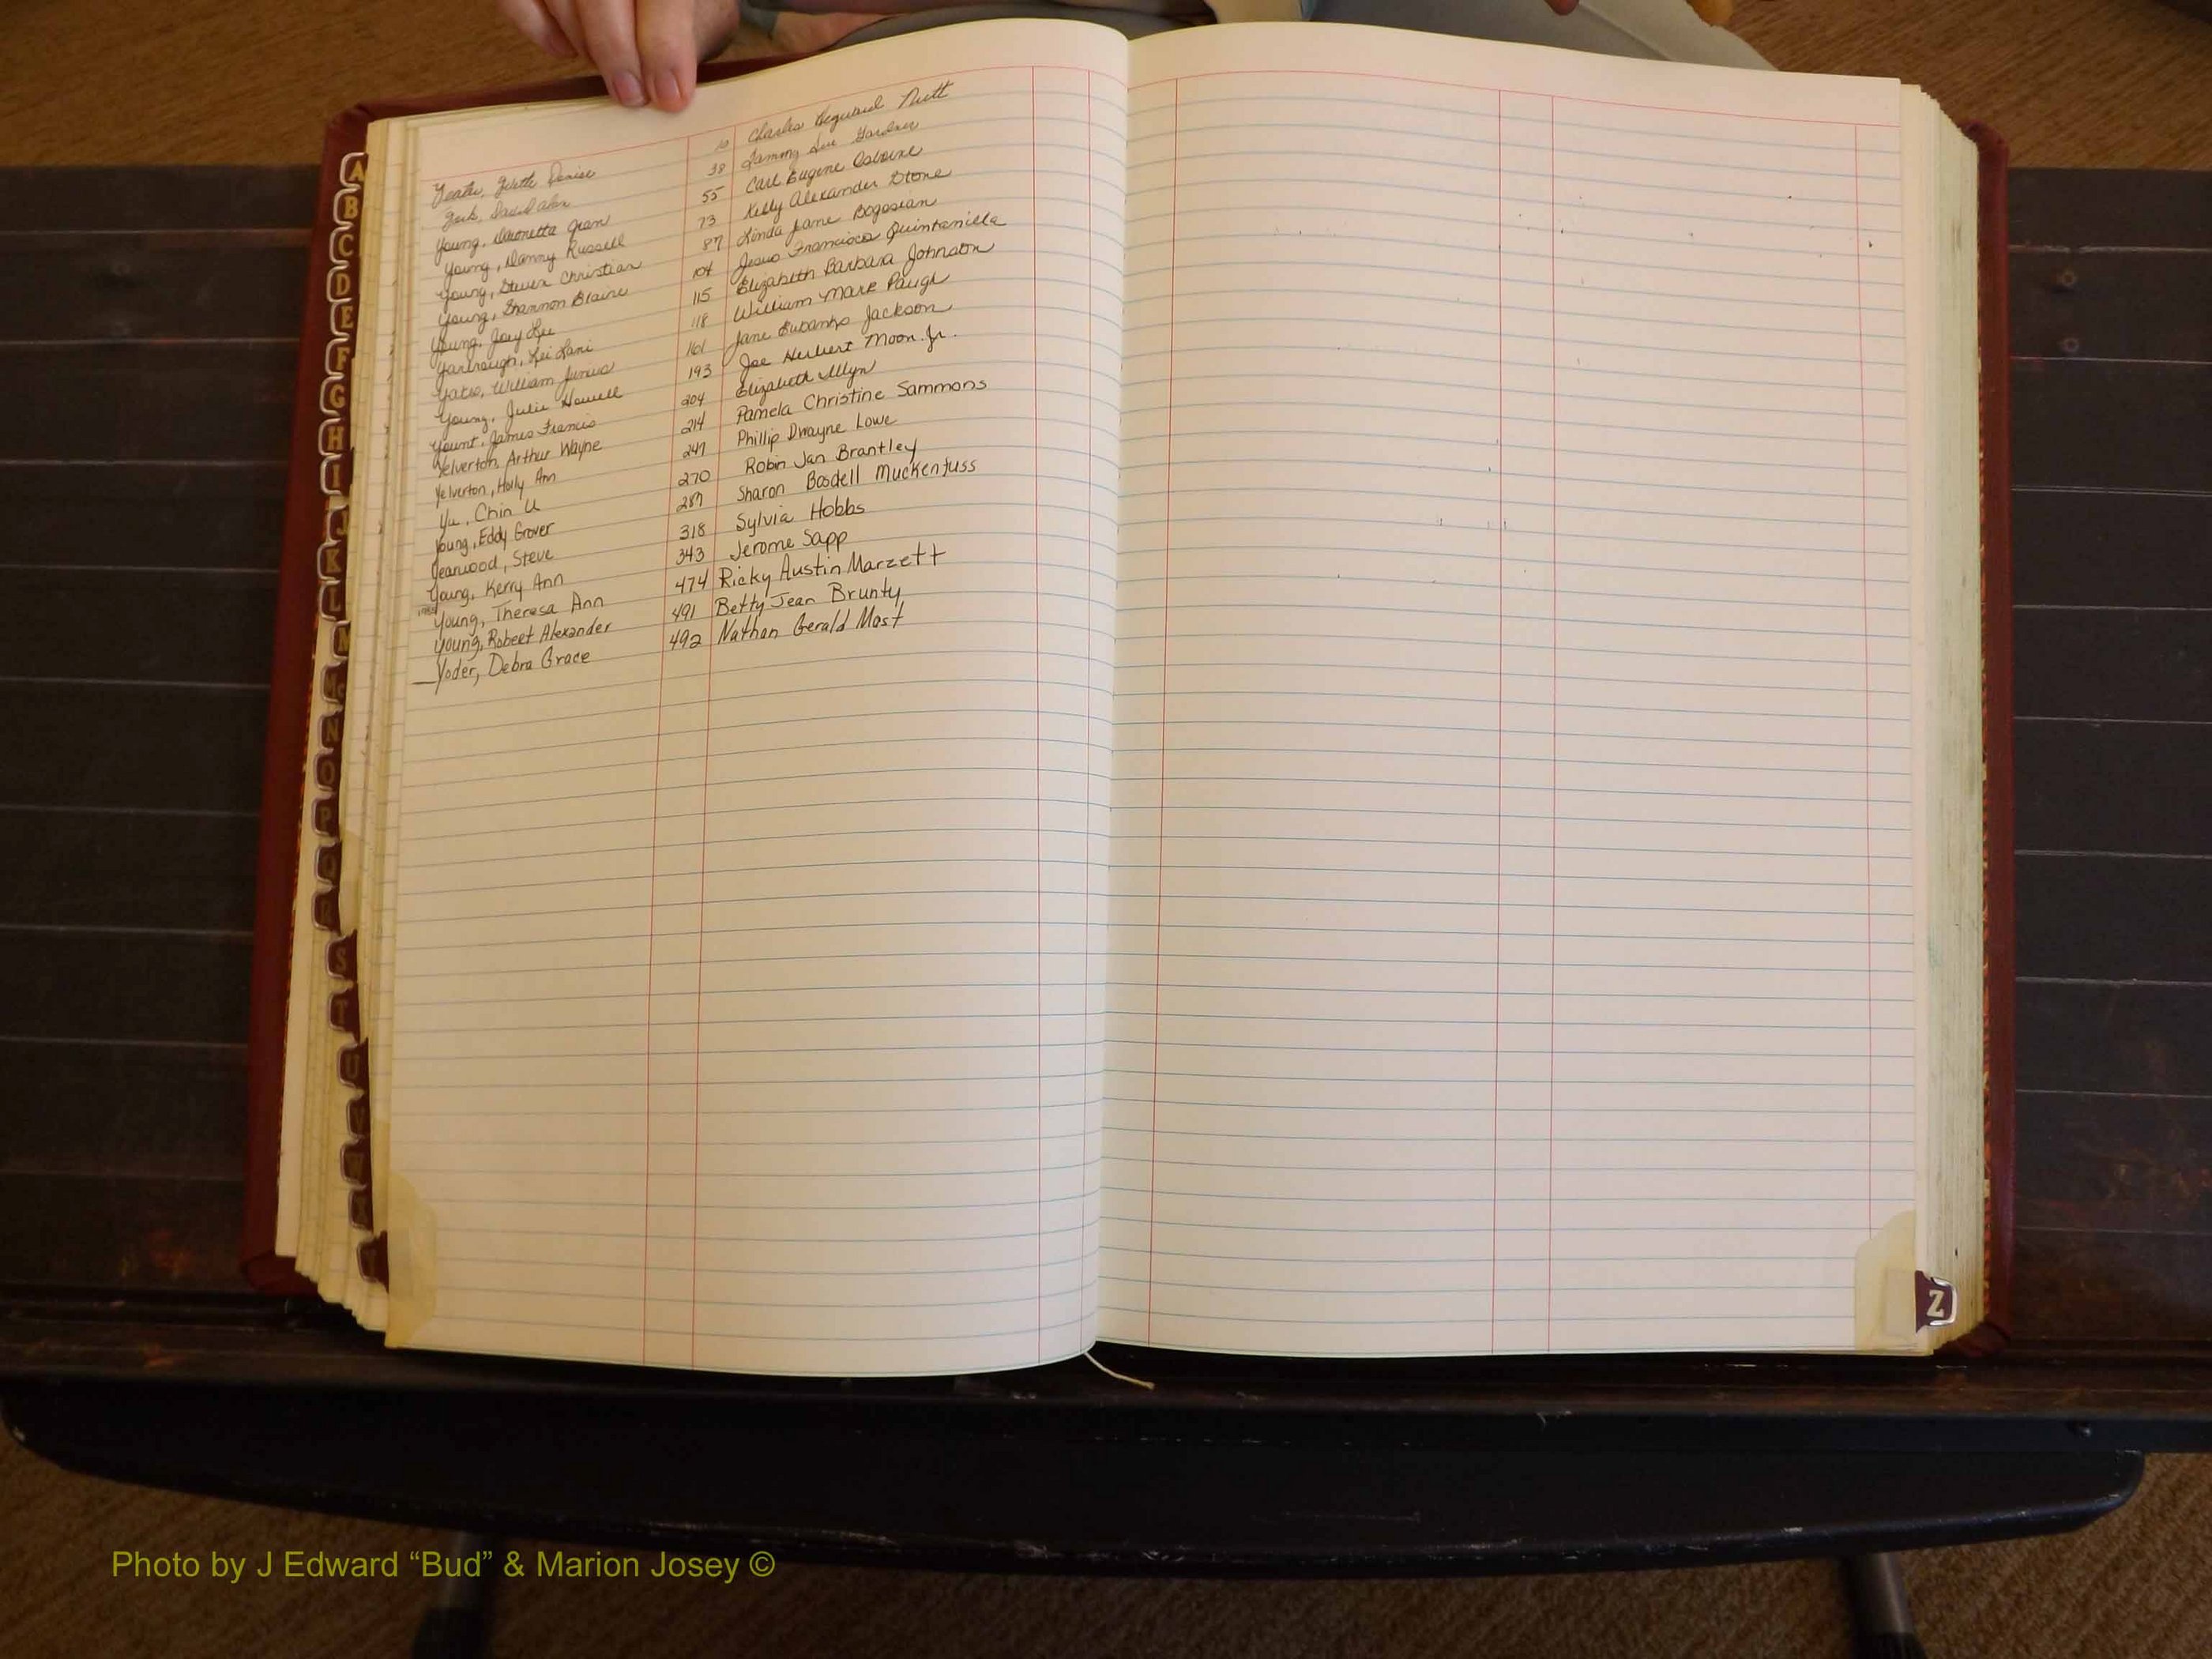 Denise 10 Charles Reginald Nutt
David Alan 38 Tammy Sue Gardner
Young, Jean 55 Carl Eugene Osborne
Young, Danny Russell 73 Kelly Alexander Stone
Young, Steven Christian 87 Linda Jane Bogosian
Young, Shannon Blaine 104 Jesus Francisco Quintanilla
Young, Joey Lee 115 Elizabeth Barbara Johnston
Yarbrough, Lei Lani 118 William Mark Paugh
Yates, William Junius 161 Jane Eubanks Jackson
Young, Julie Howell 193 Joe Herbert Moon Jr.
Yount, James Francis 204 Elizabeth
Yelverton, Arthur Wayne 214 Pamela Christine Sammons
Yelverton, Holly Ann 247 Phillip Dwayne Lowe
Yu, Chin U 270 Robin Jan Brantley
Young, Eddy Grover 287 Sharon Basdell Muckenfuss
Yearwood, Steve 318 Sylvia Hobbs
Young, Kerry Ann 343 Jerome Sapp
Young, Theresa Ann 474 Ricky Austin Marzett
Young, Robert Alexander 491 Betty Jean Brunty
Yoder, Debra Grace 492 Nathan Gerald Mast
A
B
C
D
E
F
G
H
I
J
K
L
M
Mc
N
O
P
Q
R
S
T
U
V
W
X
Y
Z
Photo by J Edward “Bud” & Marion Josey ©